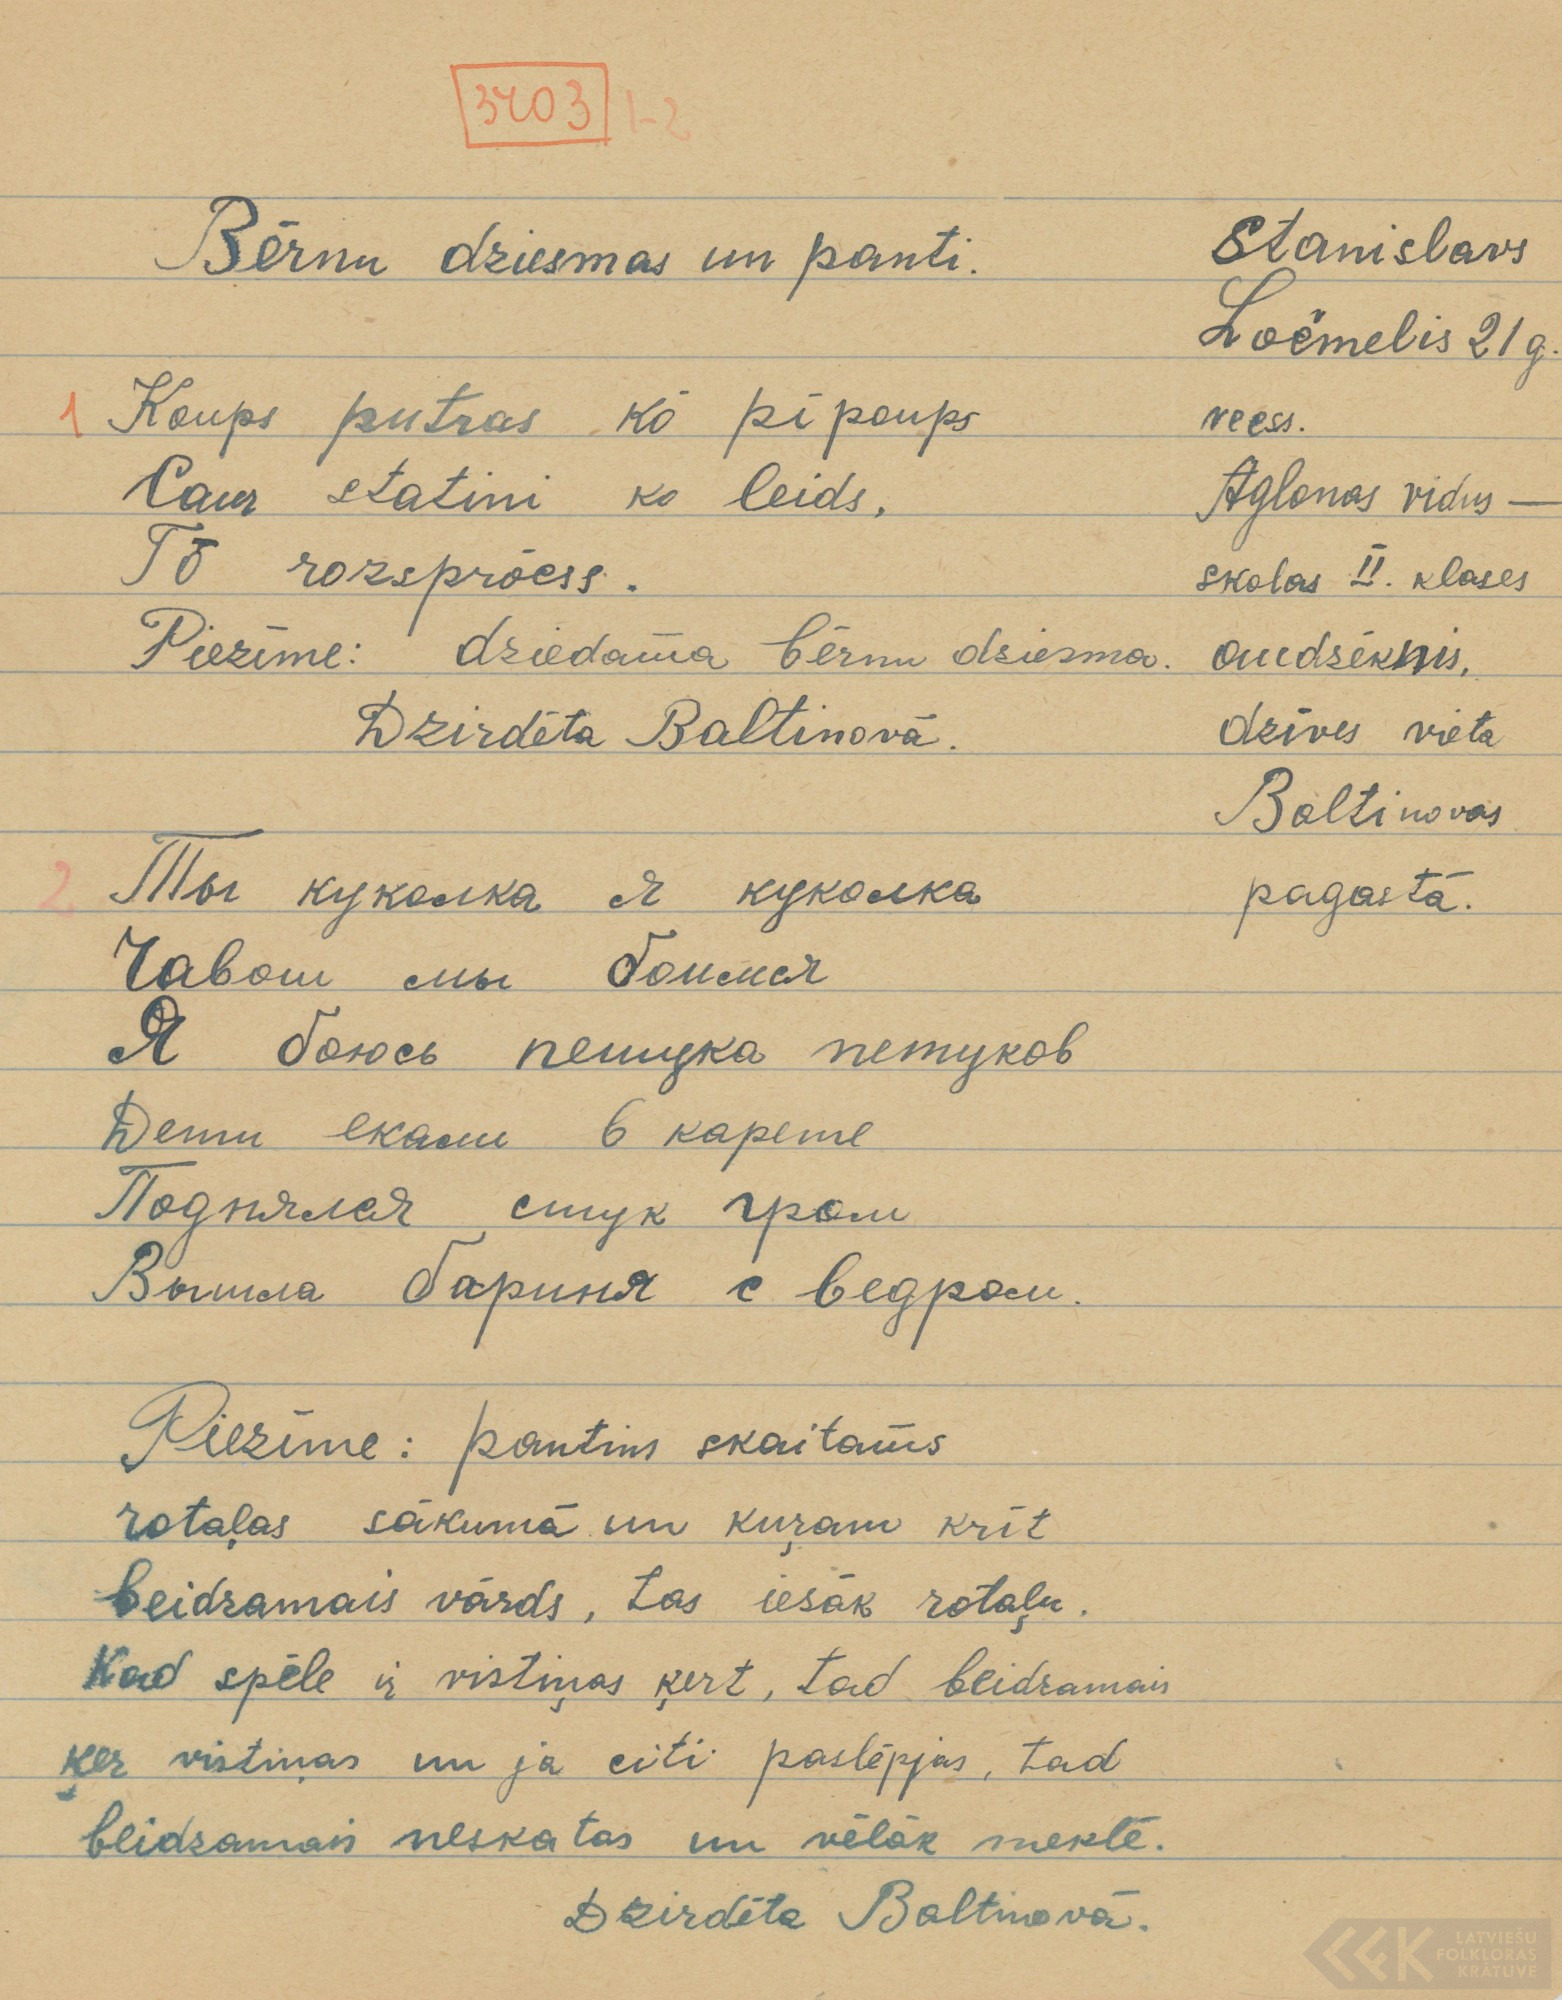 3703 1-2
Bērnu dziesmas un panti.
Stanislavs
Ločmelis 21 g.
vecs.
Aglonas vidus—
skolas II. klases
audzēknis,
dzīves vieta
Baltinovas
pagastā.
1 Koups putras kō pi poups
Caur statini ko leids,
Tō rozsprōcss.
Piezīme: dziedama bērnu dziesma.
Dzirdēta Baltinovā.
2 Ты куколка я куколка
Чавош мы боимся
Я боюсь петука петуков
Дети екали в карете
Поднялся стук гром
Вышла бариня с ведром.
Piezīme: pantins skaitams
rotaļas sākumā un kuŗam krīt
beidzamais vārds, tas iesāk rotaļu.
Kad spēle iŗ vistiņas ķert, tad beidzamais
ķer vistiņas un ja citi paslēpjas, tad
beidzamais neskatas un vēlāk meklē.
Dzirdēta Baltinovā.
LATVIEŠU
FOLKLORAS
KRĀTUVE